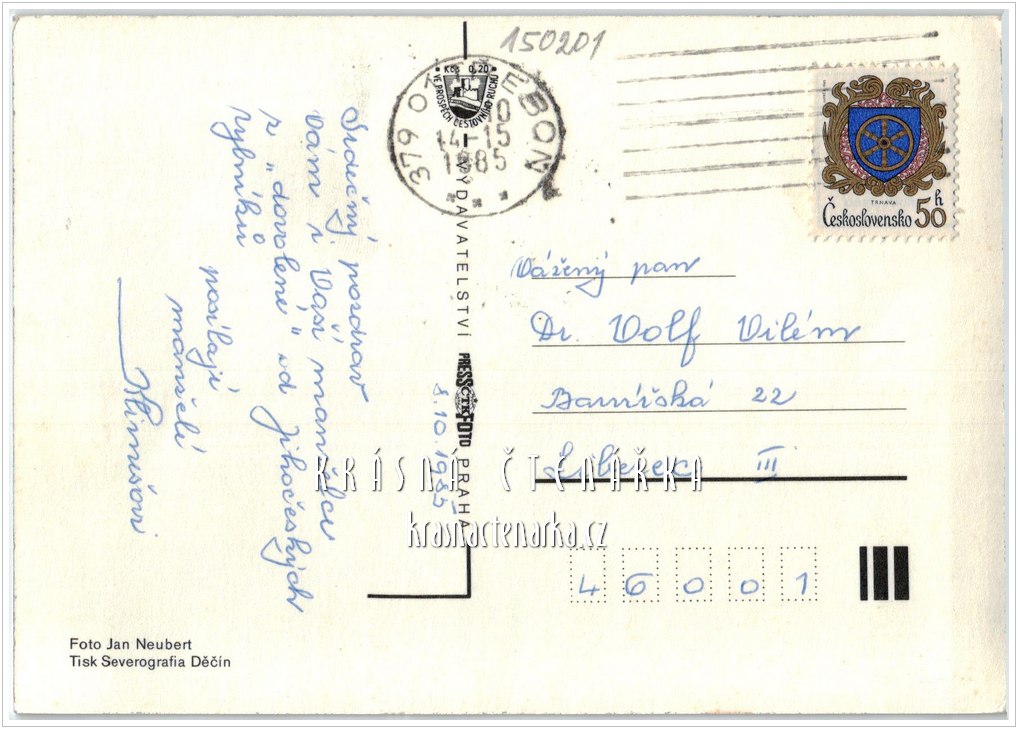 150201
Kčs 0,20
VE PROSPĚCH CESTOVNÍHO RUCHU
379 01 TŘEBOŇ
10
14-15
1985
TRNAVA
Československo 50 h
Srdečný pozdrav
Vám i Vaší manželce
z "dovolené" od Jihočeských
rybníků
posílají
manželé
Klimešovi
8.10.1985
VYDAVATELSTVÍ PRESSFOTO PRAHA
ČTK
Vážený pan
Dr. Volf Vilém
22
Liberec III
46001
KRÁSNÁ ČTENÁŘKA
krasnactenarka.cz
Foto Jan Neubert
Tisk Severografia Děčín